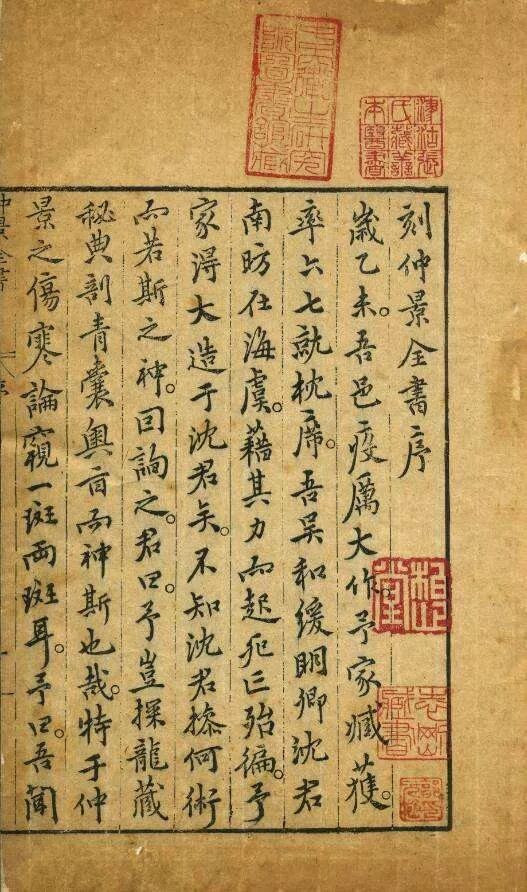 刻仲景全書序
歲乙未。吾邑疫厲大作。予家臧獲。
率六七就枕席。吾吳和緩明卿沈君
南昉在海虞。藉其力而起死亡殆徧。予
家得大造于沈君矣。不知沈君操何術
而若斯之神。因詢之。君曰。予豈探龍藏
秘典剖青囊奧旨而神斯也哉。特于仲
景之傷寒論窺一斑兩斑耳。予曰。吾聞
仲景全書
序
一
漳沽張氏藏善本醫書